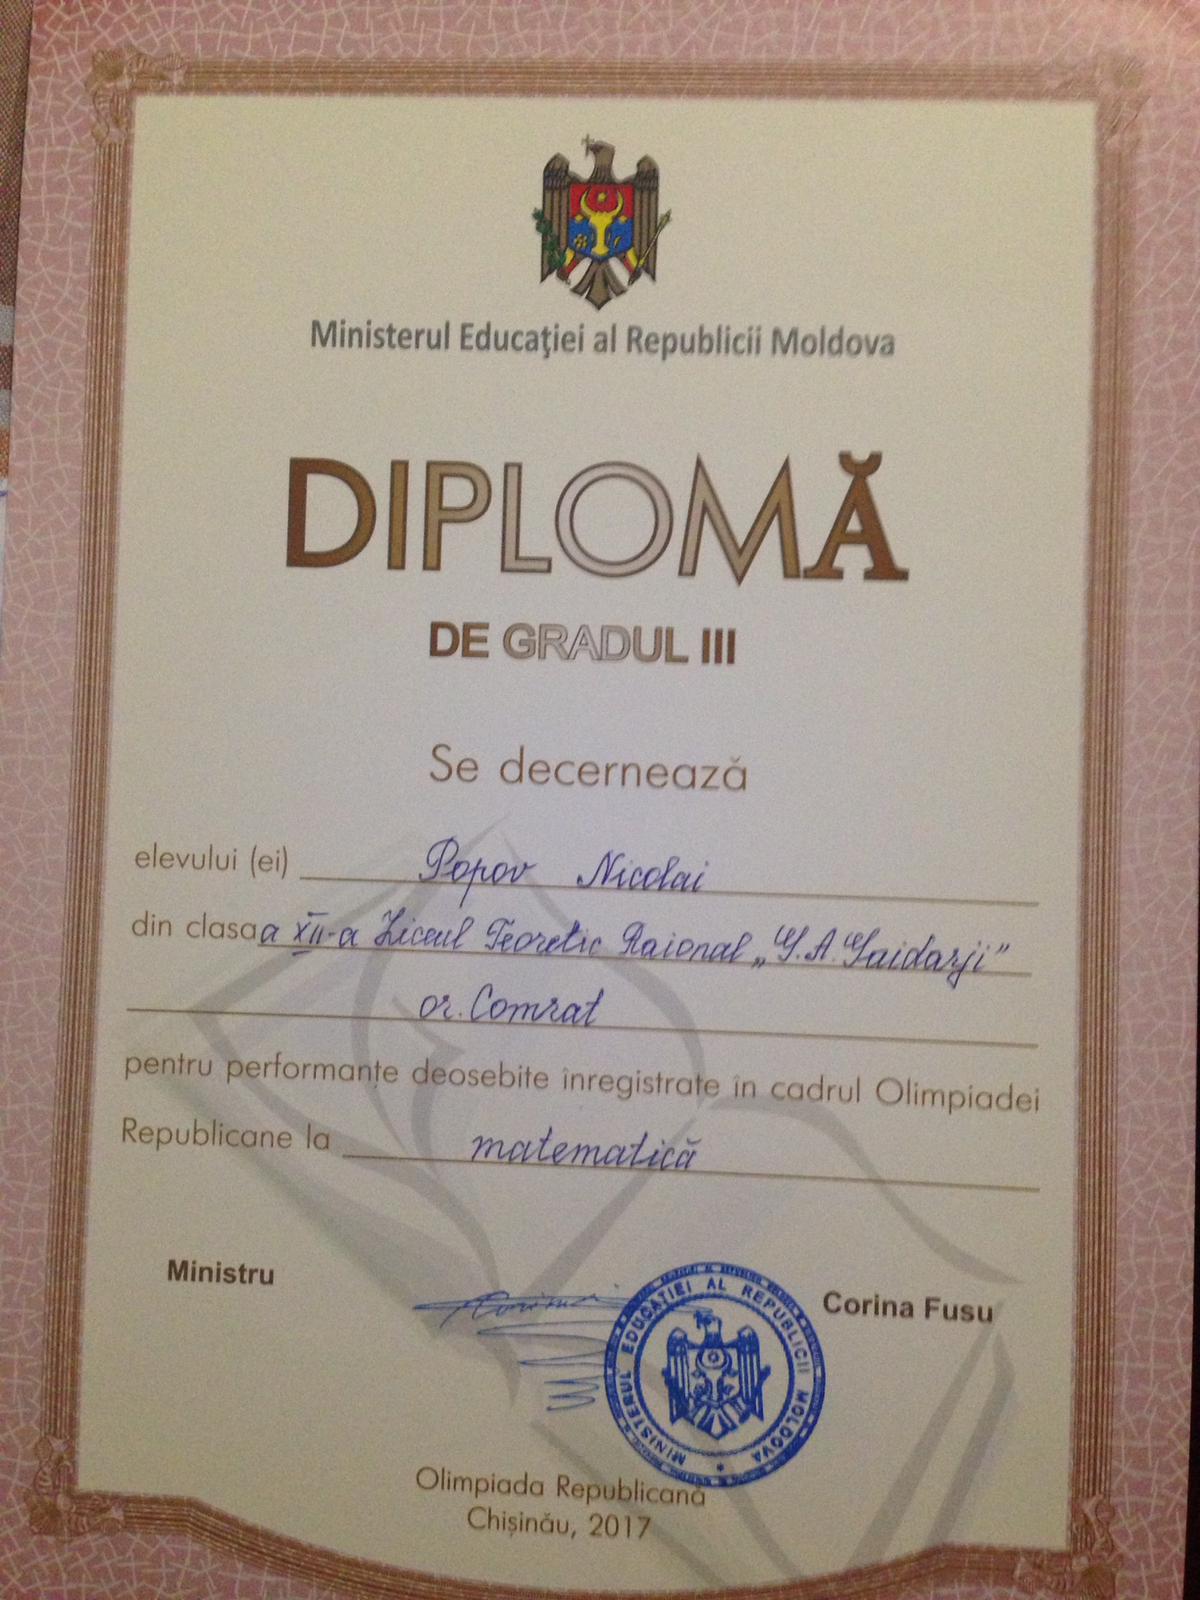 Ministerul Educaţiei al Republicii Moldova
DIPLOMĂ
DE GRADUL III
Se decernează
elevului (ei) Popov Nicolai
din clasa a XII-a Liceul Teoretic Raional „G.A.Gaidarji”
or. Comrat
pentru performanțe deosebite înregistrate în cadrul Olimpiadei
Republicane la matematică
Ministru
Corina Fusu
MINISTERUL EDUCAŢIEI AL REPUBLICII MOLDOVA
Olimpiada Republicană
Chișinău, 2017